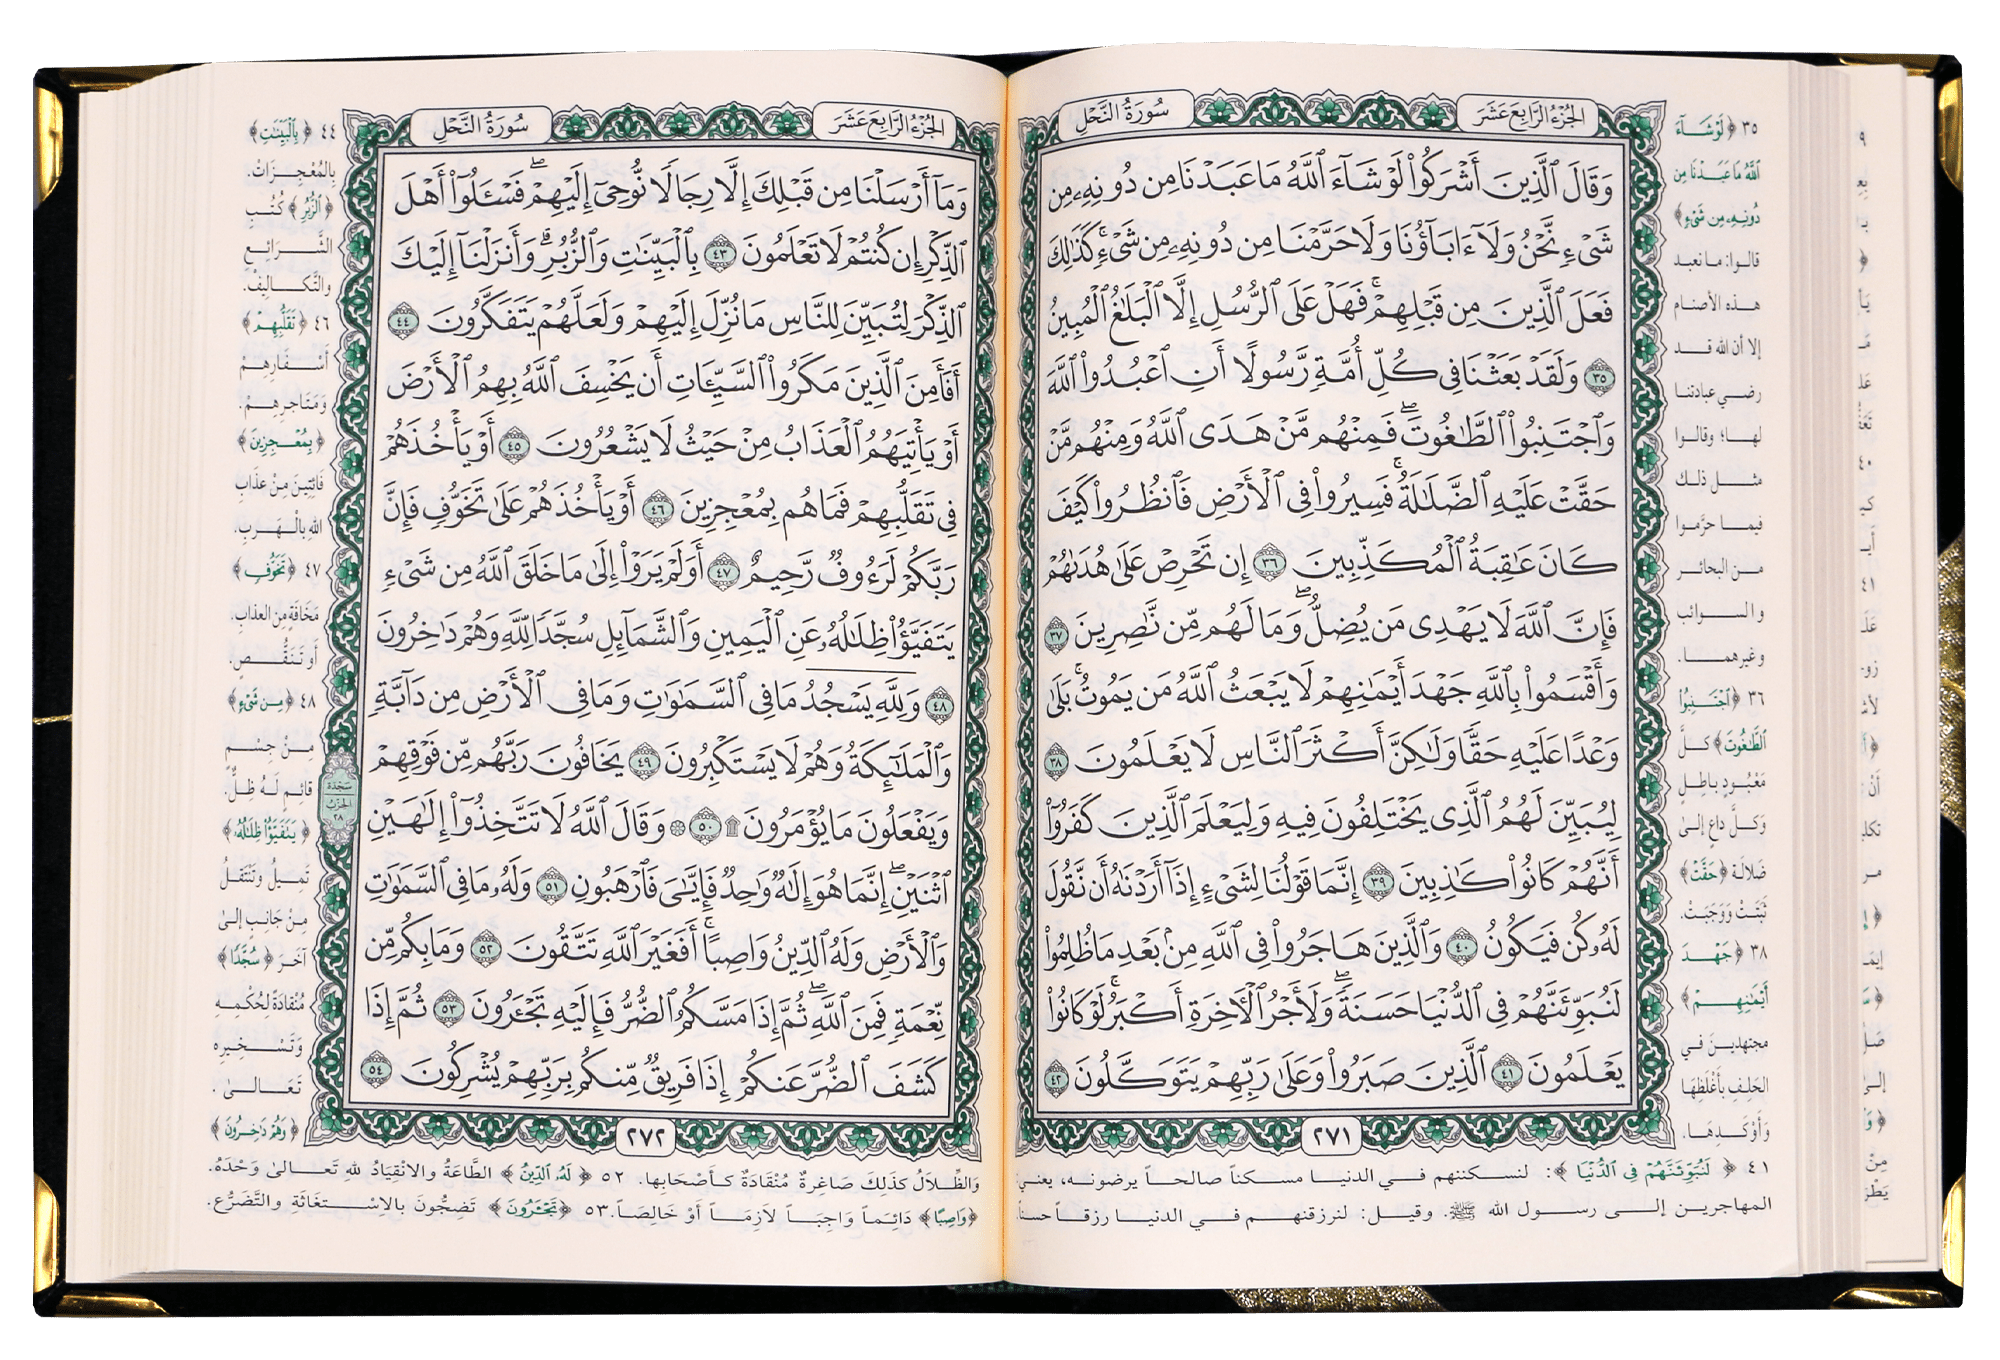 الجُزْءُ الرَّابِعَ عَشَرَ
سُورَةُ النَّحْلِ
وَقَالَ ٱلَّذِينَ أَشْرَكُوا۟ لَوْ شَآءَ ٱللَّهُ مَا عَبَدْنَا مِن دُونِهِۦ مِن
شَىْءٍ نَّحْنُ وَلَآ ءَابَآؤُنَا وَلَا حَرَّمْنَا مِن دُونِهِۦ مِن شَىْءٍ ۚ كَذَٰلِكَ
فَعَلَ ٱلَّذِينَ مِن قَبْلِهِمْ ۚ فَهَلْ عَلَى ٱلرُّسُلِ إِلَّا ٱلْبَلَٰغُ ٱلْمُبِينُ
٣٥ وَلَقَدْ بَعَثْنَا فِى كُلِّ أُمَّةٍ رَّسُولًا أَنِ ٱعْبُدُوا۟ ٱللَّهَ
وَٱجْتَنِبُوا۟ ٱلطَّٰغُوتَ ۖ فَمِنْهُم مَّنْ هَدَى ٱللَّهُ وَمِنْهُم مَّنْ
حَقَّتْ عَلَيْهِ ٱلضَّلَٰلَةُ ۚ فَسِيرُوا۟ فِى ٱلْأَرْضِ فَٱنظُرُوا۟ كَيْفَ
كَانَ عَٰقِبَةُ ٱلْمُكَذِّبِينَ ٣٦ إِن تَحْرِصْ عَلَىٰ هُدَىٰهُمْ
فَإِنَّ ٱللَّهَ لَا يَهْدِى مَن يُضِلُّ ۖ وَمَا لَهُم مِّن نَّٰصِرِينَ ٣٧
وَأَقْسَمُوا۟ بِٱللَّهِ جَهْدَ أَيْمَٰنِهِمْ لَا يَبْعَثُ ٱللَّهُ مَن يَمُوتُ ۚ بَلَىٰ
وَعْدًا عَلَيْهِ حَقًّا وَلَٰكِنَّ أَكْثَرَ ٱلنَّاسِ لَا يَعْلَمُونَ ٣٨
لِيُبَيِّنَ لَهُمُ ٱلَّذِى يَخْتَلِفُونَ فِيهِ وَلِيَعْلَمَ ٱلَّذِينَ كَفَرُوٓا۟
أَنَّهُمْ كَانُوا۟ كَٰذِبِينَ ٣٩ إِنَّمَا قَوْلُنَا لِشَىْءٍ إِذَآ أَرَدْنَٰهُ أَن نَّقُولَ
لَهُۥ كُن فَيَكُونُ ٤٠ وَٱلَّذِينَ هَاجَرُوا۟ فِى ٱللَّهِ مِنۢ بَعْدِ مَا ظُلِمُوا۟
لَنُبَوِّئَنَّهُمْ فِى ٱلدُّنْيَا حَسَنَةً ۖ وَلَأَجْرُ ٱلْءَاخِرَةِ أَكْبَرُ ۚ لَوْ كَانُوا۟
يَعْلَمُونَ ٤١ ٱلَّذِينَ صَبَرُوا۟ وَعَلَىٰ رَبِّهِمْ يَتَوَكَّلُونَ ٤٢
٢٧١
٣٥ ﴿لَوْ شَآءَ
ٱللَّهُ مَا عَبَدْنَا مِن
دُونِهِۦ مِن شَىْءٍ﴾
قالوا: ما نعبد
هذه الأصنام
إلا أن الله قد
رضي عبادتنا
لها؛ وقالوا
مثل ذلك
فيما حرَّموا
من البحائر
والسوائب
وغيرهما.
٣٦ ﴿ٱجْتَنِبُوا۟
ٱلطَّٰغُوتَ﴾ كلَّ
مَعْبُودٍ باطِلٍ
وَكلَّ داعٍ إلىٰ
ضَلالَة ﴿حَقَّتْ﴾
ثَبَتَتْ وَوَجَبَتْ.
٣٨ ﴿جَهْدَ
أَيْمَٰنِهِمْ﴾
مجتهدين في
الحَلِفِ بأَغْلَظِهَا
وَأَوْكَدِهَا.
٤١ ﴿لَنُبَوِّئَنَّهُمْ فِى ٱلدُّنْيَا﴾: لنسكننهم في الدنيا مسكناً صالحاً يرضونه، يعني
المهاجرين إلى رسول الله ﷺ. وقيل: لنرزقنهم في الدنيا رزقاً حسناً.
الجُزْءُ الرَّابِعَ عَشَرَ
سُورَةُ النَّحْلِ
وَمَآ أَرْسَلْنَا مِن قَبْلِكَ إِلَّا رِجَالًا نُّوحِىٓ إِلَيْهِمْ ۖ فَسْـَٔلُوٓا۟ أَهْلَ
ٱلذِّكْرِ إِن كُنتُمْ لَا تَعْلَمُونَ ٤٣ بِٱلْبَيِّنَٰتِ وَٱلزُّبُرِ ۗ وَأَنزَلْنَآ إِلَيْكَ
ٱلذِّكْرَ لِتُبَيِّنَ لِلنَّاسِ مَا نُزِّلَ إِلَيْهِمْ وَلَعَلَّهُمْ يَتَفَكَّرُونَ ٤٤
أَفَأَمِنَ ٱلَّذِينَ مَكَرُوا۟ ٱلسَّيِّـَٔاتِ أَن يَخْسِفَ ٱللَّهُ بِهِمُ ٱلْأَرْضَ
أَوْ يَأْتِيَهُمُ ٱلْعَذَابُ مِنْ حَيْثُ لَا يَشْعُرُونَ ٤٥ أَوْ يَأْخُذَهُمْ
فِى تَقَلُّبِهِمْ فَمَا هُم بِمُعْجِزِينَ ٤٦ أَوْ يَأْخُذَهُمْ عَلَىٰ تَخَوُّفٍ فَإِنَّ
رَبَّكُمْ لَرَءُوفٌ رَّحِيمٌ ٤٧ أَوَلَمْ يَرَوْا۟ إِلَىٰ مَا خَلَقَ ٱللَّهُ مِن شَىْءٍ
يَتَفَيَّؤُا۟ ظِلَٰلُهُۥ عَنِ ٱلْيَمِينِ وَٱلشَّمَآئِلِ سُجَّدًا لِّلَّهِ وَهُمْ دَٰخِرُونَ
٤٨ وَلِلَّهِ يَسْجُدُ مَا فِى ٱلسَّمَٰوَٰتِ وَمَا فِى ٱلْأَرْضِ مِن دَآبَّةٍ
وَٱلْمَلَٰٓئِكَةُ وَهُمْ لَا يَسْتَكْبِرُونَ ٤٩ يَخَافُونَ رَبَّهُم مِّن فَوْقِهِمْ
وَيَفْعَلُونَ مَا يُؤْمَرُونَ ۩ ٥٠ ۞ وَقَالَ ٱللَّهُ لَا تَتَّخِذُوٓا۟ إِلَٰهَيْنِ
ٱثْنَيْنِ ۖ إِنَّمَا هُوَ إِلَٰهٌ وَٰحِدٌ ۖ فَإِيَّٰىَ فَٱرْهَبُونِ ٥١ وَلَهُۥ مَا فِى ٱلسَّمَٰوَٰتِ
وَٱلْأَرْضِ وَلَهُ ٱلدِّينُ وَاصِبًا ۚ أَفَغَيْرَ ٱللَّهِ تَتَّقُونَ ٥٢ وَمَا بِكُم مِّن
نِّعْمَةٍ فَمِنَ ٱللَّهِ ۖ ثُمَّ إِذَا مَسَّكُمُ ٱلضُّرُّ فَإِلَيْهِ تَجْـَٔرُونَ ٥٣ ثُمَّ إِذَا
كَشَفَ ٱلضُّرَّ عَنكُمْ إِذَا فَرِيقٌ مِّنكُم بِرَبِّهِمْ يُشْرِكُونَ ٥٤
٢٧٢
سَجْدَة
الحزب
٢٨
٤٤ ﴿بِٱلْبَيِّنَٰتِ﴾
بِالمُعْجِزَاتْ.
﴿ٱلزُّبُرِ﴾ كُتُبِ
الشَّرَائِعِ
والتَّكَالِيفْ.
٤٦ ﴿تَقَلُّبِهِمْ﴾
أَسْفَارِهِمْ
وَمَتَاجِرِهِمْ.
﴿بِمُعْجِزِينَ﴾
فَائِتِينَ مِنْ عَذَابِ
اللهِ بِالْهَرَبِ.
٤٧ ﴿تَخَوُّفٍ﴾
مَخَافَةٍ مِن العذابِ.
أَو تَنَقُّصٍ.
٤٨ ﴿مِن شَىْءٍ﴾
مِنْ جِسْمٍ
قائِمٍ لَهُ ظِلٌّ.
﴿يَتَفَيَّؤُا۟ ظِلَٰلُهُۥ﴾
تَمِيلُ وَتَنْتَقِلُ
مِنْ جَانِبٍ إلىٰ
آخَرَ ﴿سُجَّدًا﴾
مُنْقَادَةً لحُكْمِهِ
وَتَسْخِيرِهِ
تَعَالىٰ.
﴿وَهُمْ دَٰخِرُونَ﴾
وَالظِّلالُ كَذَلِكَ صَاغِرةٌ مُنْقَادَةٌ كَأَصْحَابِها. ٥٢ ﴿لَهُ ٱلدِّينُ﴾ الطَّاعَةُ والانْقِيَادُ للهِ تَعَالىٰ وَحْدَهُ.
﴿وَاصِبًا﴾ دَائِماً وَاجِبَاً لاَزِمَاً أَوْ خَالِصَاً. ٥٣ ﴿تَجْـَٔرُونَ﴾ تَضِجُّونَ بالاِسْتِغَاثَةِ وَالتَّضَرُّعِ.